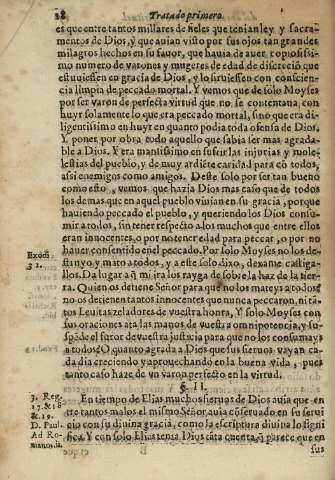 28 Tratado primero.
es que entre tantos millares de fieles que tenian ley y sacra-
mentos de Dios, y que auian visto por sus ojos tan grandes
milagros hechos en su fauor, que hauia de auer copiosissi-
mo numero de varones y mugeres de edad de discreció que
estuuiessen en gracia de Dios, y lo siruiessen con conscien-
cia limpia de peccado mortal. Y vemos que de solo Moyses
por ser varon de perfecta virtud que no se contentaua con
huyr solamente lo que era peccado mortal, sino que era di-
ligentissimo en huyr en quanto podia toda ofensa de Dios.
Y poner por obra todo aquello que sabia ser mas agrada-
ble a Dios. Y era mansissimo en sufrir las injurias y mole-
stias del pueblo, y de muy ardiéte caridad para có todos,
assi enemigos como amigos. Deste solo por ser tan bueno
como esto, vemos que hazia Dios mas caso que de todos
los demas que en aquel pueblo viuian en su gracia, porque
hauiendo peccado el pueblo, y queriendo los Dios consu-
mir a todos, sin tener respecto a los muchos que entre ellos
eran innocentes, o por no tener edad para peccar, o por no
hauer consentido en el peccado. Por solo Moyses no los de-
struyo y mato a todos, y a este solo dixo, dexame castiga-
llos. Da lugar a q̃ mi ira los rayga de sobre la haz de la tie-
rra. Quien os detiene Señor para que no los mateys a todos?
no os detienen tantos innocentes que nunca peccaron, ni tá-
tos Leuitas zeladores de vuestra honra, Y solo Moyses con
sus oraciones ata las manos de vuestra omnipotencia, y sus-
pẽde el furor de vuestra justicia para que no los consumays
a todos? O quanto agrada a Dios que sus sieruos vayan ca-
da dia creciendo y aprouechando en la buena vida, pues
tanto caso haze de vn varon perfecto en la virtud.
§. II.
En tiempo de Elias muchos sieruos de Dios auia que en-
tre tantos malos el mismo Señor auia cóseruado en su serui
cio con su diuina gracia, como la escriptura diuina lo signi
fica. Y con solo Elias tenia Dios táta cuenta, q̃ parece que en
sus
Exodi
32.
3. Reg.
17. & 18
& 19.
D. Paul.
Ad Ro-
manos. 11.